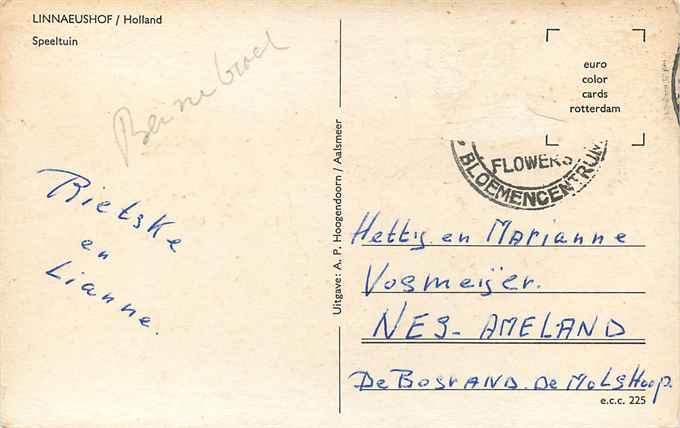 LINNAEUSHOF / Holland
Speeltuin
Bennebroek
Rietske
en
Lianne.
Uitgave: A. P. Hoogendoorn / Aalsmeer
euro
color
cards
rotterdam
FLOWERS
BLOEMENCENTRUM
Hetty en Marianne
Vosmeijer.
NES- AMELAND
De Bosrand. De Molshoop.
e.c.c. 225